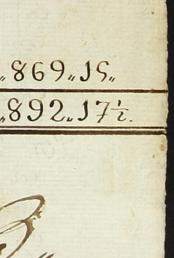 „869„15„
„892„17½.